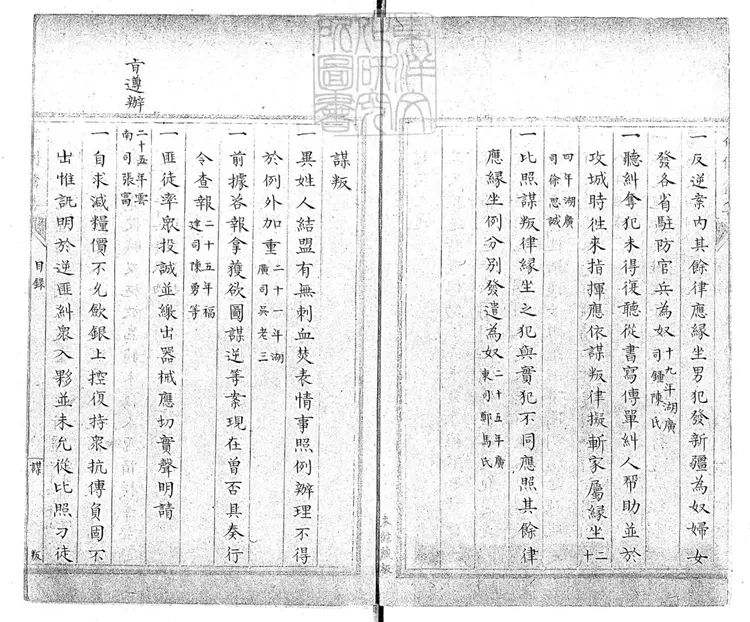 一反逆案内其餘律應緣坐男犯發新疆為奴婦女
發各省駐防官兵為奴十九年湖廣司鍾陳氏
一聽糾奪犯未得復聽從書寫傳單糾人幫助並於
攻城時徃來指揮應依謀叛律擬斬家屬緣坐二十
四年湖廣司徐思誠
一比照謀叛律緣坐之犯與實犯不同應照其餘律
應緣坐例分別發遣為奴二十五年廣東司鄭馬氏
謀叛
一異姓人結盟有無刺血焚表情事照例辦理不得
於例外加重二十一年湖廣司吳老三
一前據咨報拿獲欲圖謀逆等案現在曾否具奏行
令查報二十五年福建司陳勇等
一匪徒率眾投誠並繳出器械應切實聲明請
旨遵辦
二十五年雲南司張富
一自求減糧價不允歛銀上控復持眾抗傳負固不
出惟訊明於逆匪糾眾入夥並未允從比照刁徒
目錄
謀
叛
東洋文
化研究
所圖書